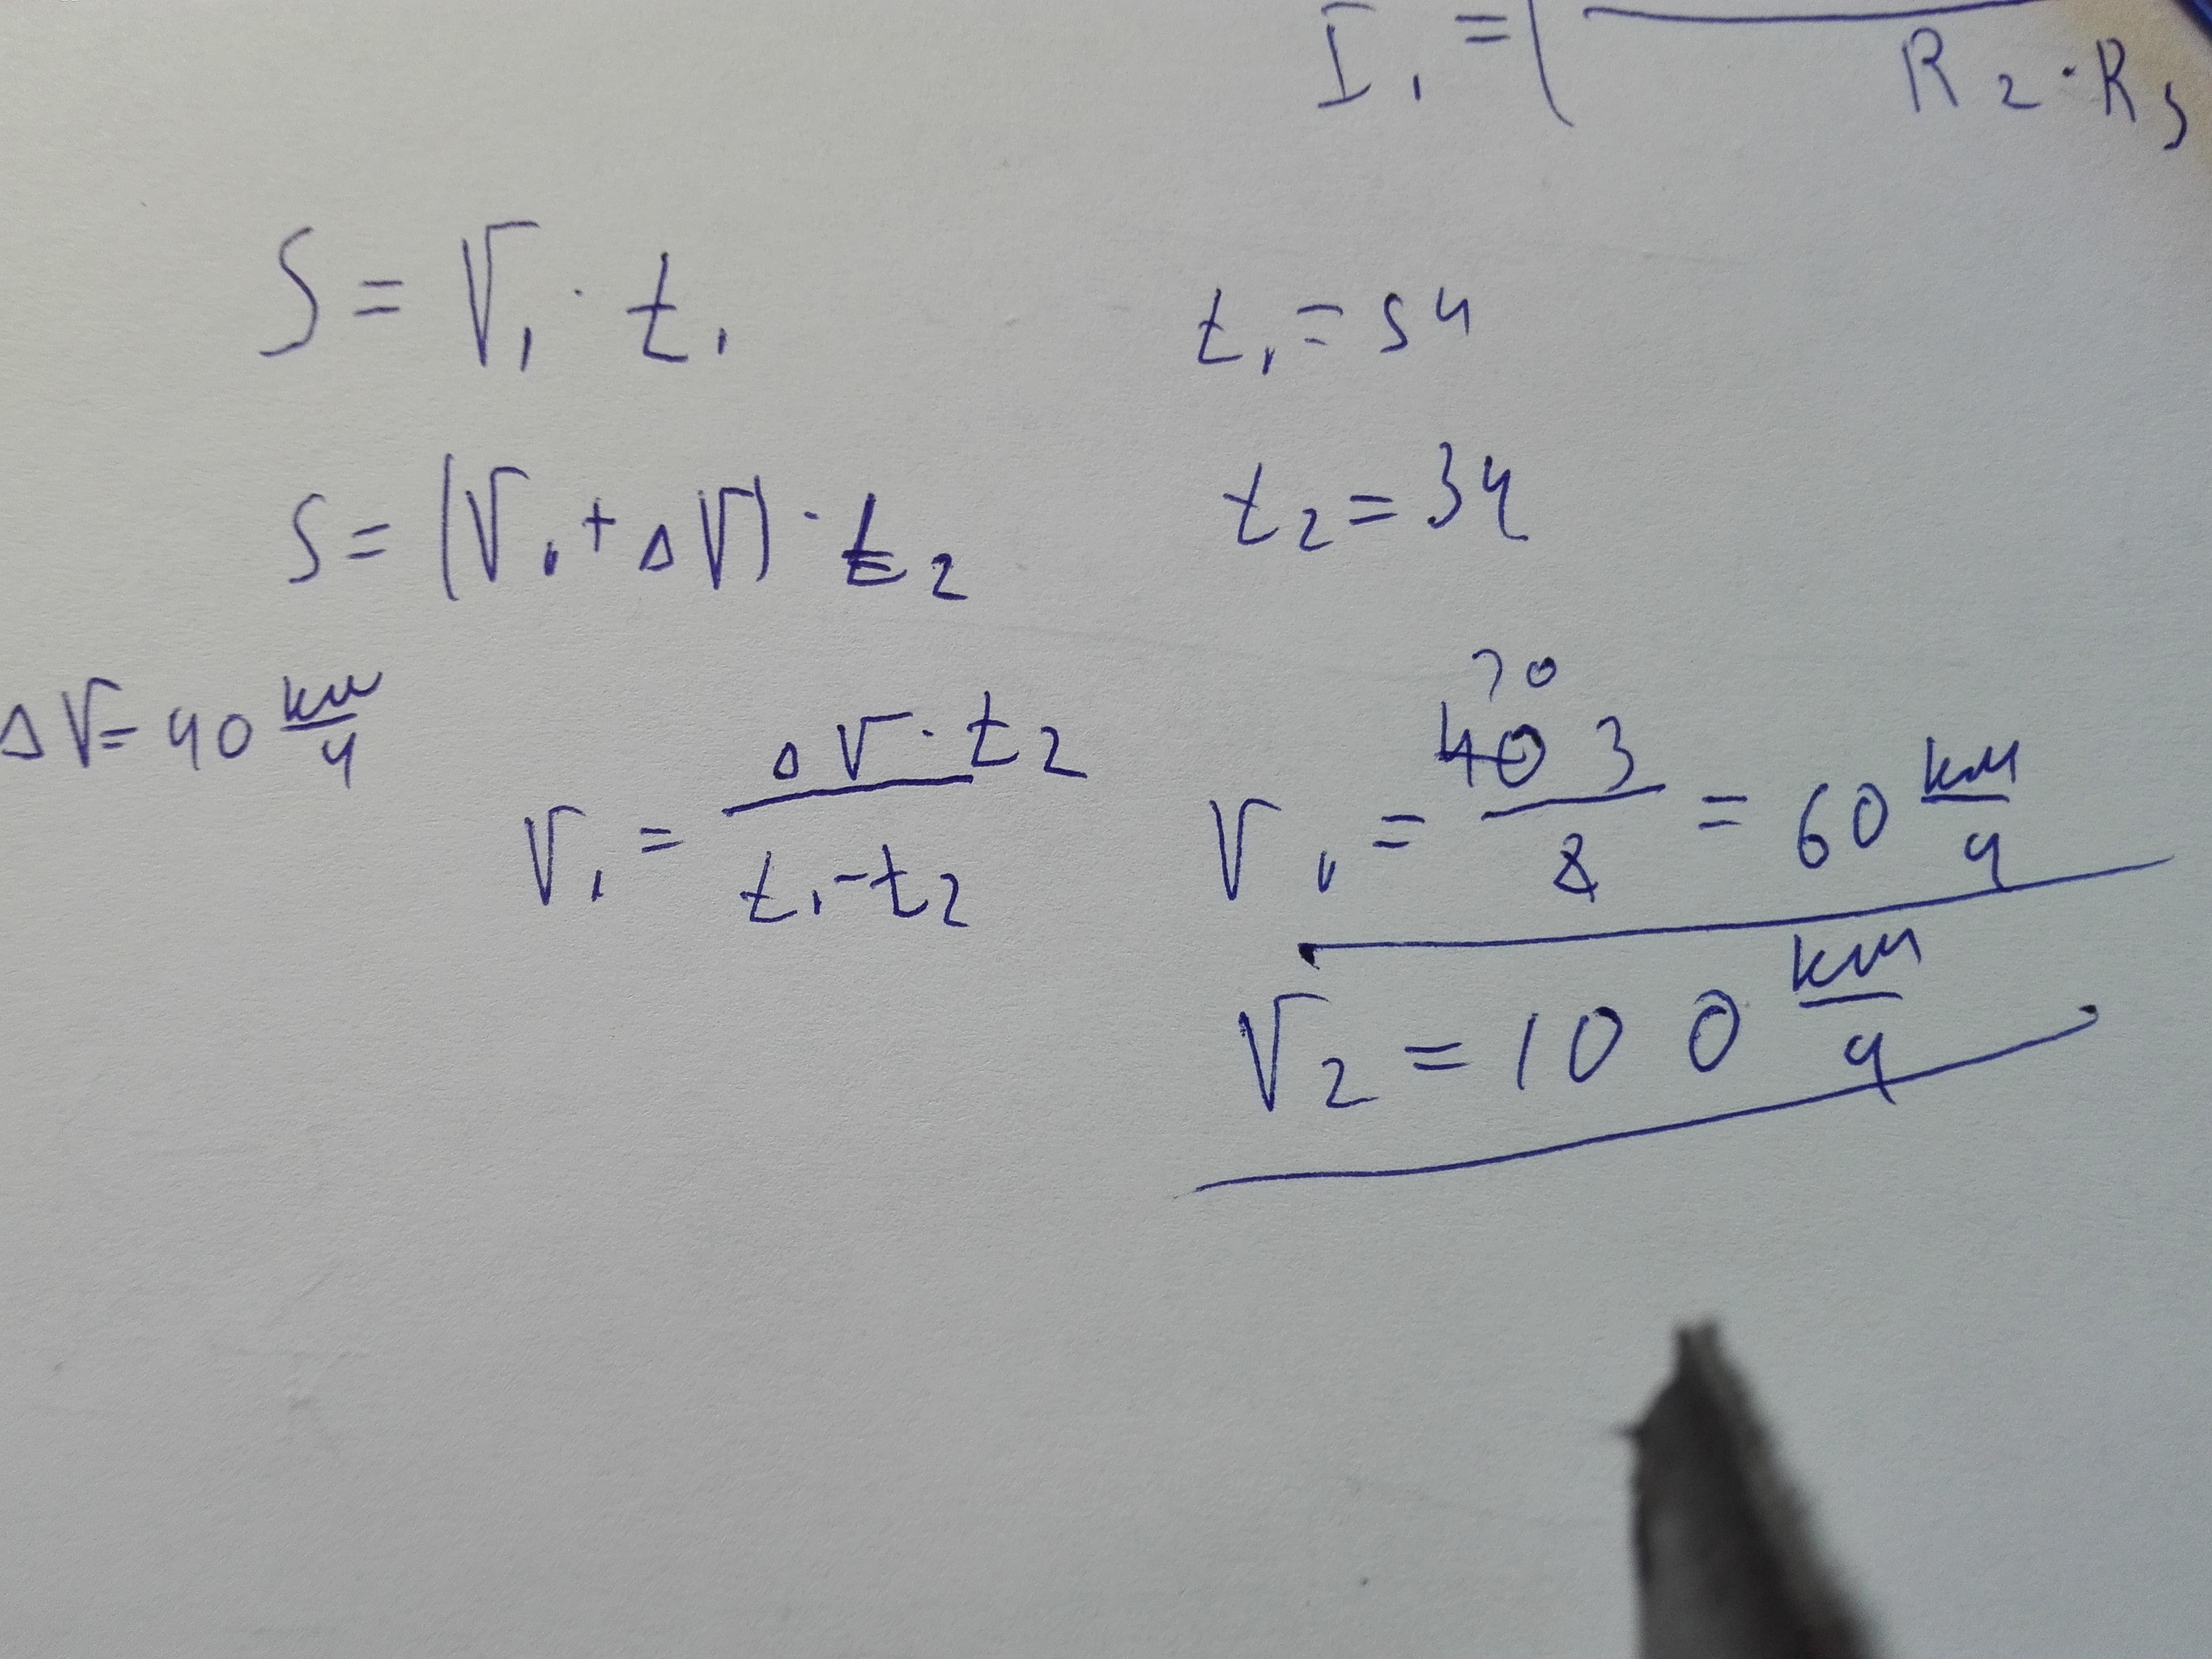 I₁ = ( / R₂ · R₃
S = V₁ · t₁
t₁ = 5 ч
S = (V₁ + ΔV) · t₂
t₂ = 3 ч
ΔV = 40 км/ч
V₁ = ΔV · t₂ / t₁ - t₂
20
V₁ = 40 3 / 2 = 60 км/ч
V₂ = 100 км/ч